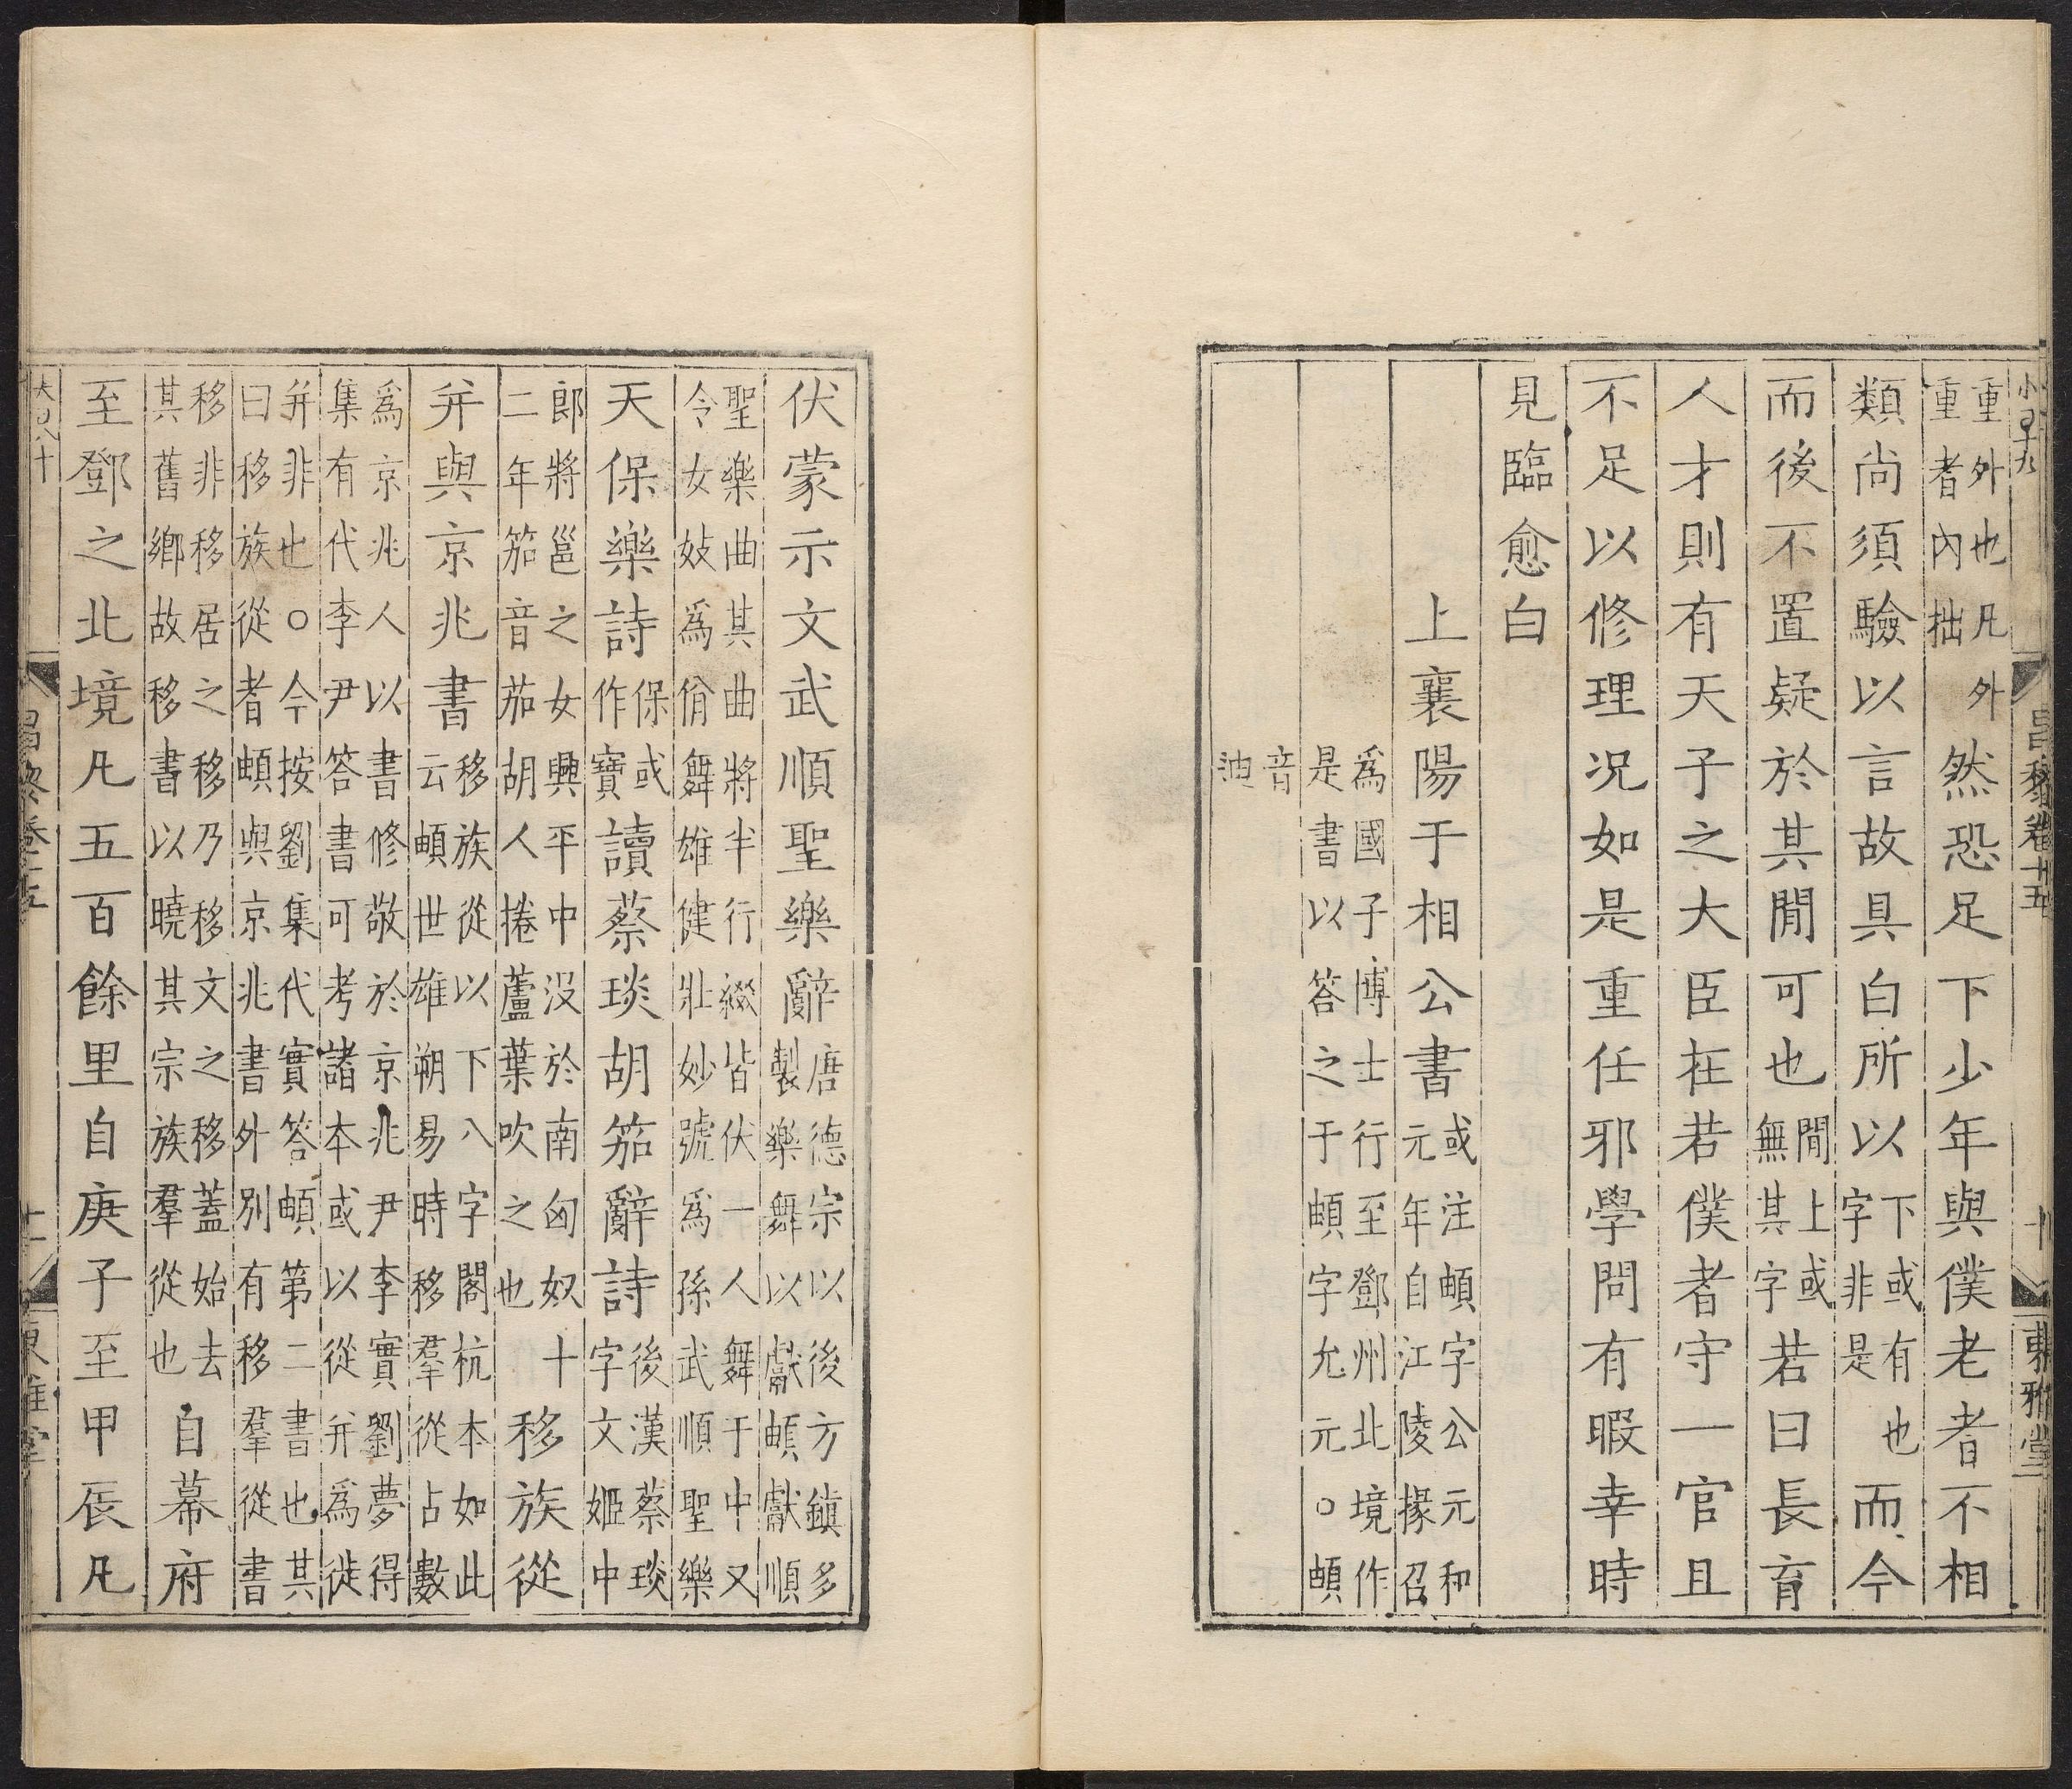 昌黎卷十五 十 東雅堂
重外也凡外重者內拙然恐足下少年與僕老者不相
類尚須驗以言故具白所以下或有也字非是而今
而後不置疑於其閒可也閒上或無其字若曰長育
人才則有天子之大臣在若僕者守一官且
不足以修理况如是重任邪學問有暇幸時
見臨愈白
上襄陽于相公書或注頔字公元和元年自江陵掾召
爲國子博士行至鄧州北境作是書以答之于頔字允元○頔
音迪
伏蒙示文武順聖樂辭唐德宗以後方鎮多製樂舞以獻頔獻順
聖樂曲其曲將半行綴皆伏一人舞于中又令女妓爲佾舞雄健壯妙號爲孫武順聖樂
天保樂詩保或作寶讀蔡琰胡笳辭詩後漢蔡琰字文姬中
郎將邕之女興平中沒於南匈奴十二年笳音茄胡人捲蘆葉吹之也移族從
并與京兆書移族從以下八字閣杭本如此云頔世雄朔易時移羣從占數
爲京兆人以書修敬於京兆尹李實劉夢得集有代李尹答書可考諸本或以從并爲徙
并非也○今按劉集代實答頔第二書也其曰移族從者頔與京兆書外別有移羣從書
移非移居之移乃移文之移蓋始去其舊鄉故移書以曉其宗族羣從也自幕府
至鄧之北境凡五百餘里自庚子至甲辰凡
昌黎卷十五 十一 東雅堂